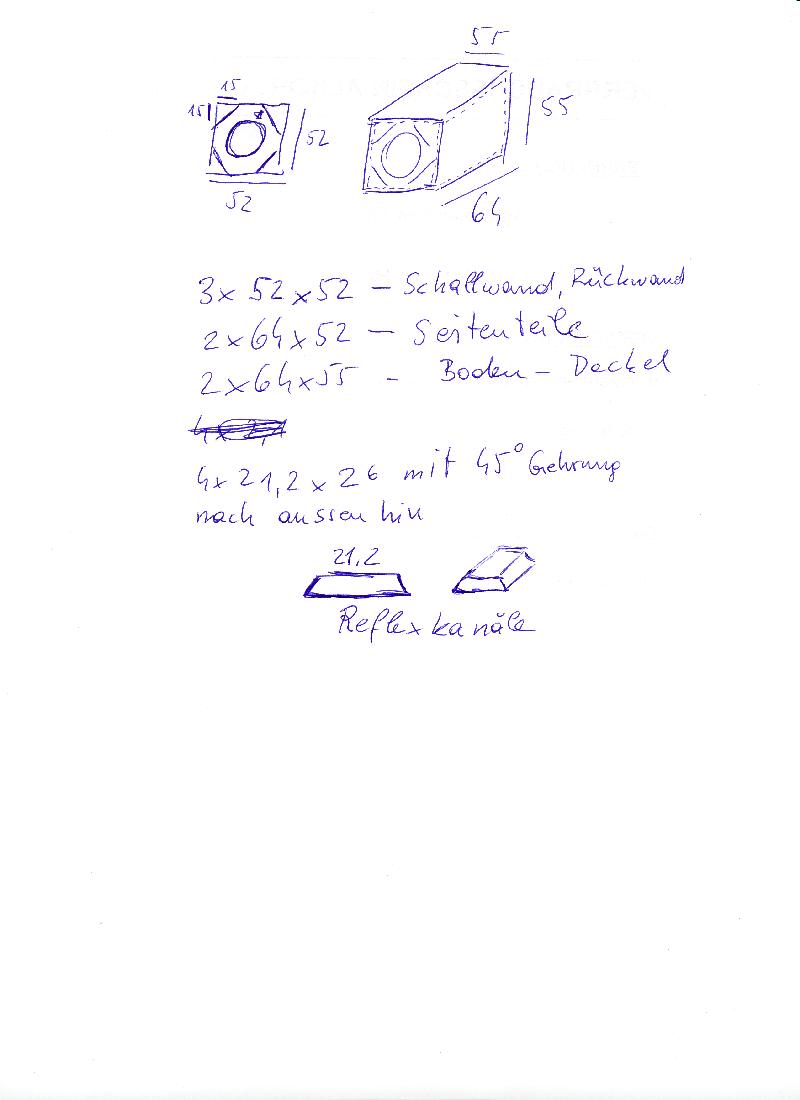 55
15
15
52
52
55
64
3x 52x52 – Schallwand, Rückwand
2x64x52 – Seitenteile
2x64x55 - Boden – Deckel
4x 21,2 x 26 mit 45° Gehrung
nach aussen hin
21,2
Reflexkanäle